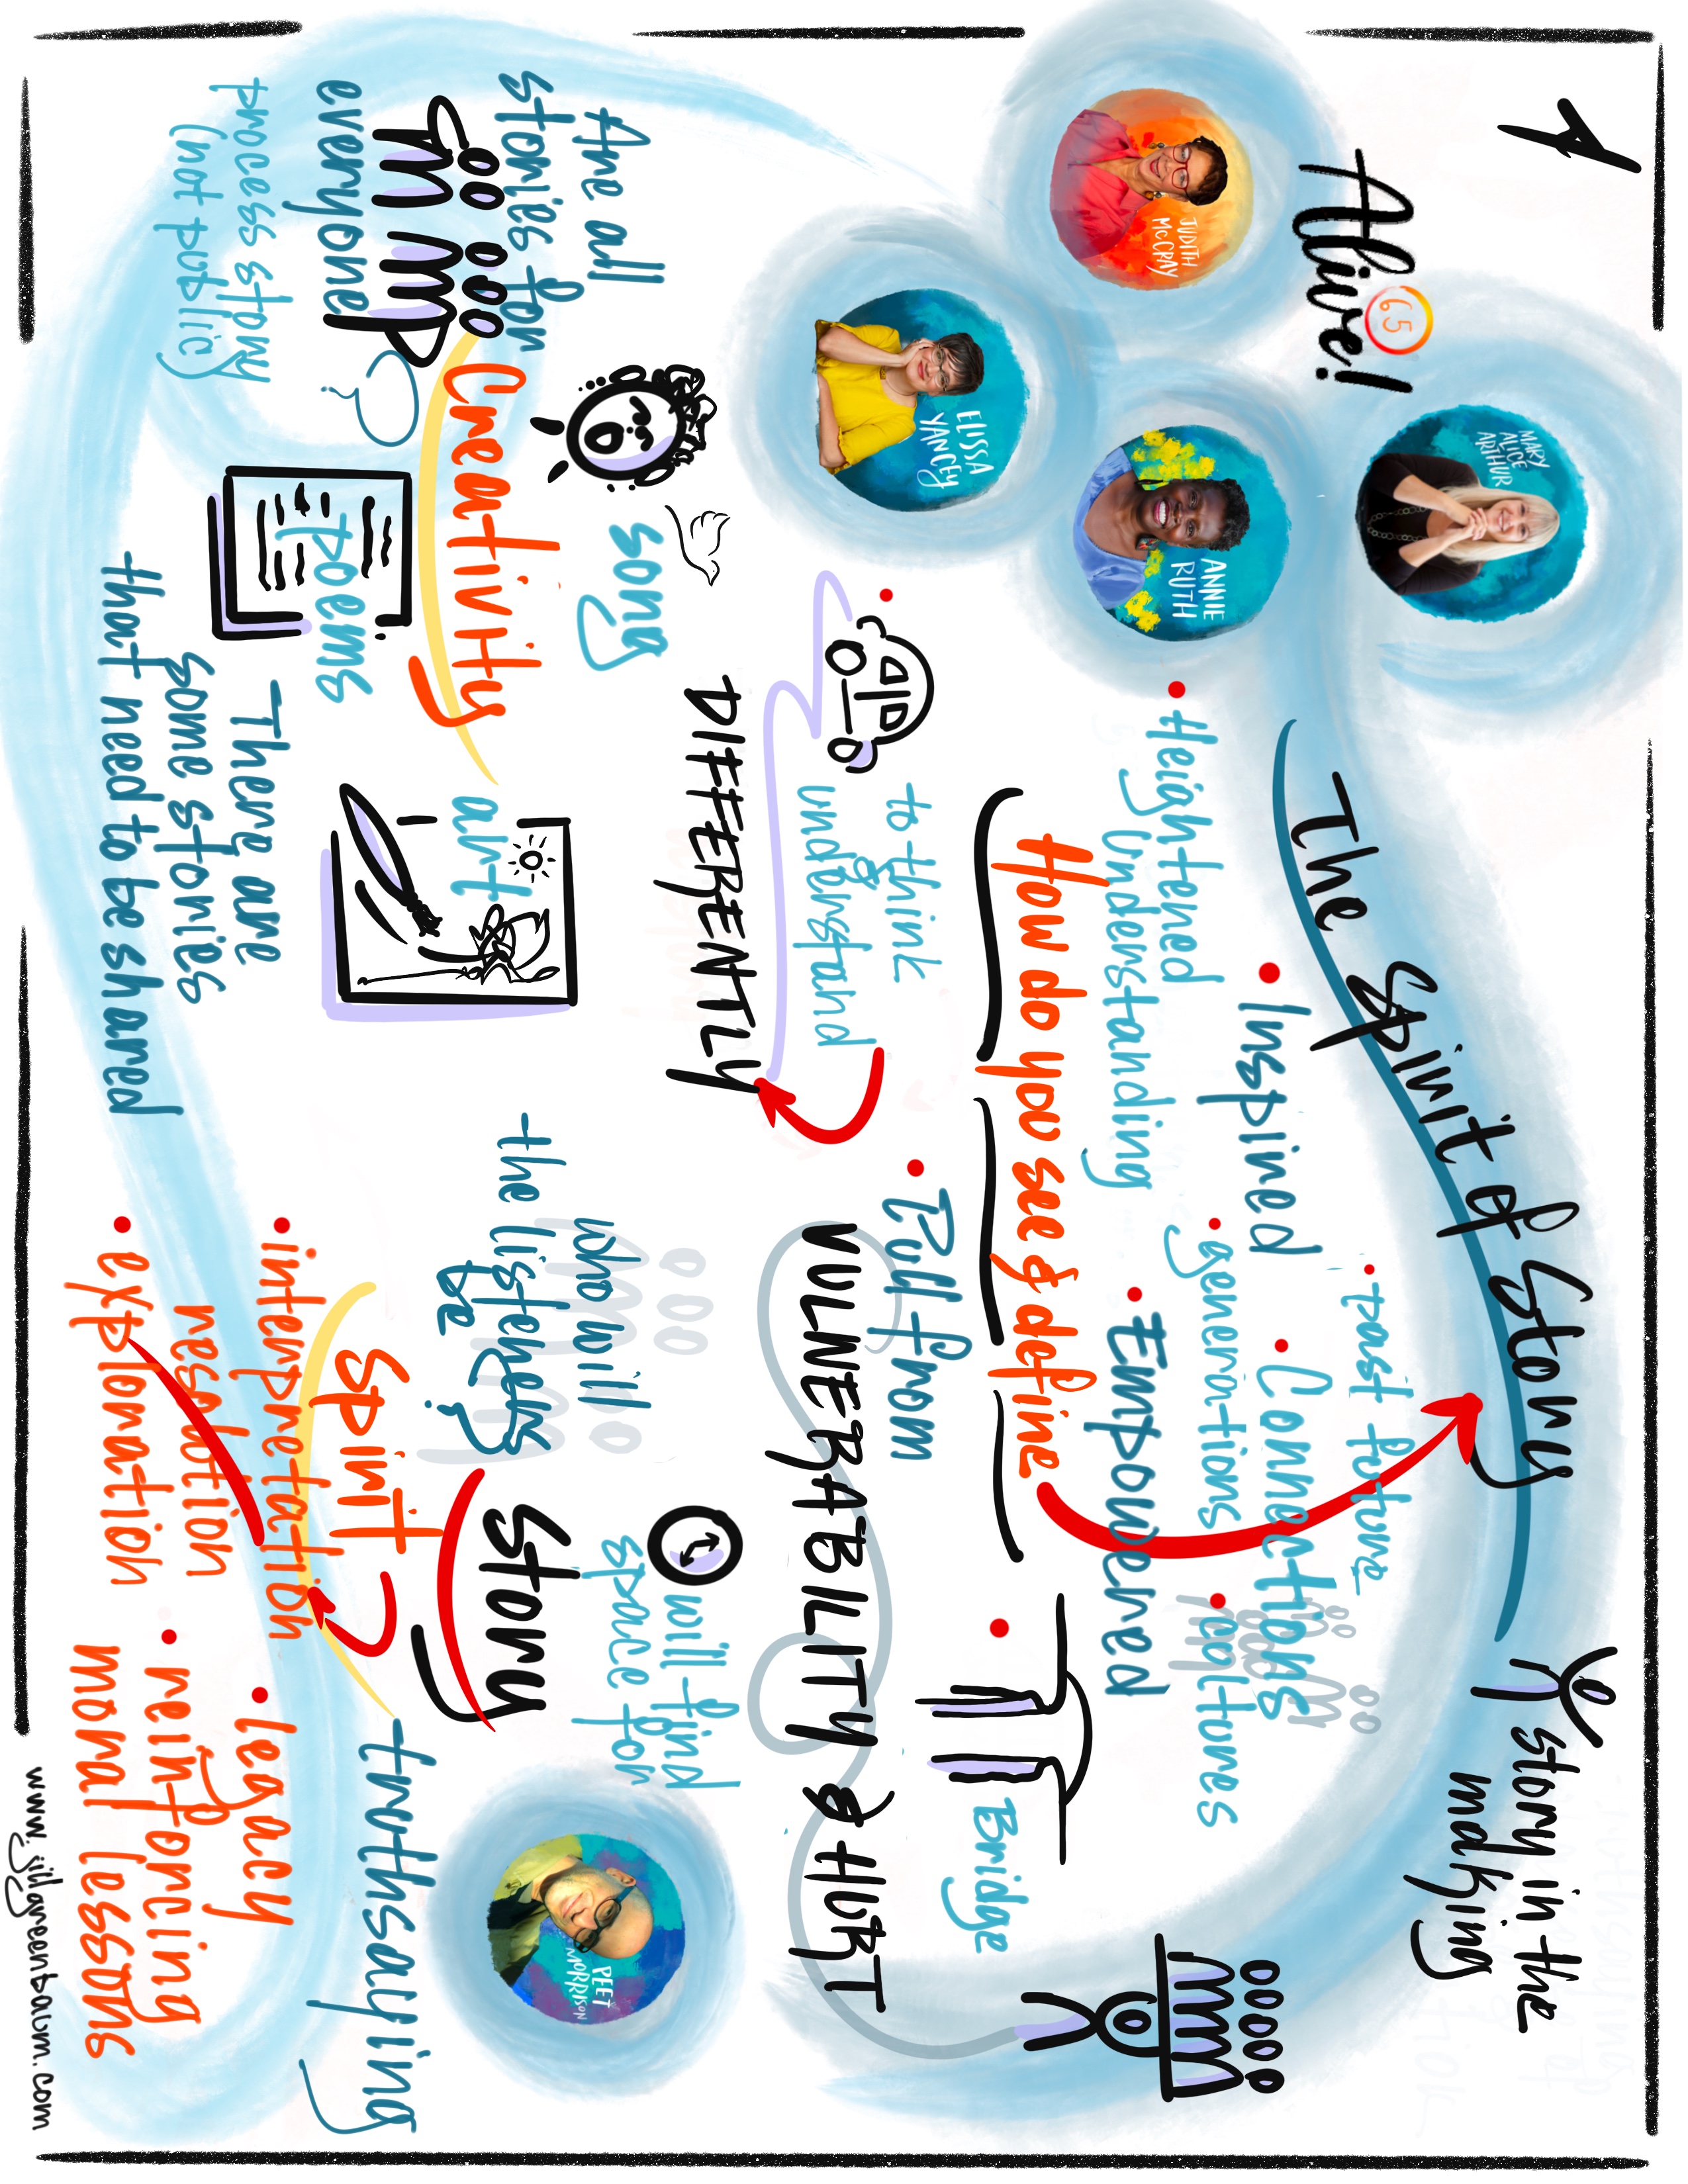 1
Alive!
65
JUDITH
McCRAY
MARY
ALICE
ARTHUR
ELISSA
YANCEY
ANNIE
RUTH
The Spirit of Story
story in the
making
• past future
• Inspired
• Connections
• generations
• cultures
• Heightened
Understanding
• Empowered
How do you see & define
• Bridge
• to think
&
understand
DIFFERENTLY
• Pull from
VULNERABILITY & HURT
Are all
stories for
everyone?
process story
(not public)
song
Creativity
poems
art
There are
some stories
that need to be shared
who will
the listeners
be?
will find
space for
Story
Spirit
PEET
MORRISON
truthsaying
• interpretation
resolution
• exploration
• legacy
• reinforcing
moral lessons
www.jillgreenbaum.com